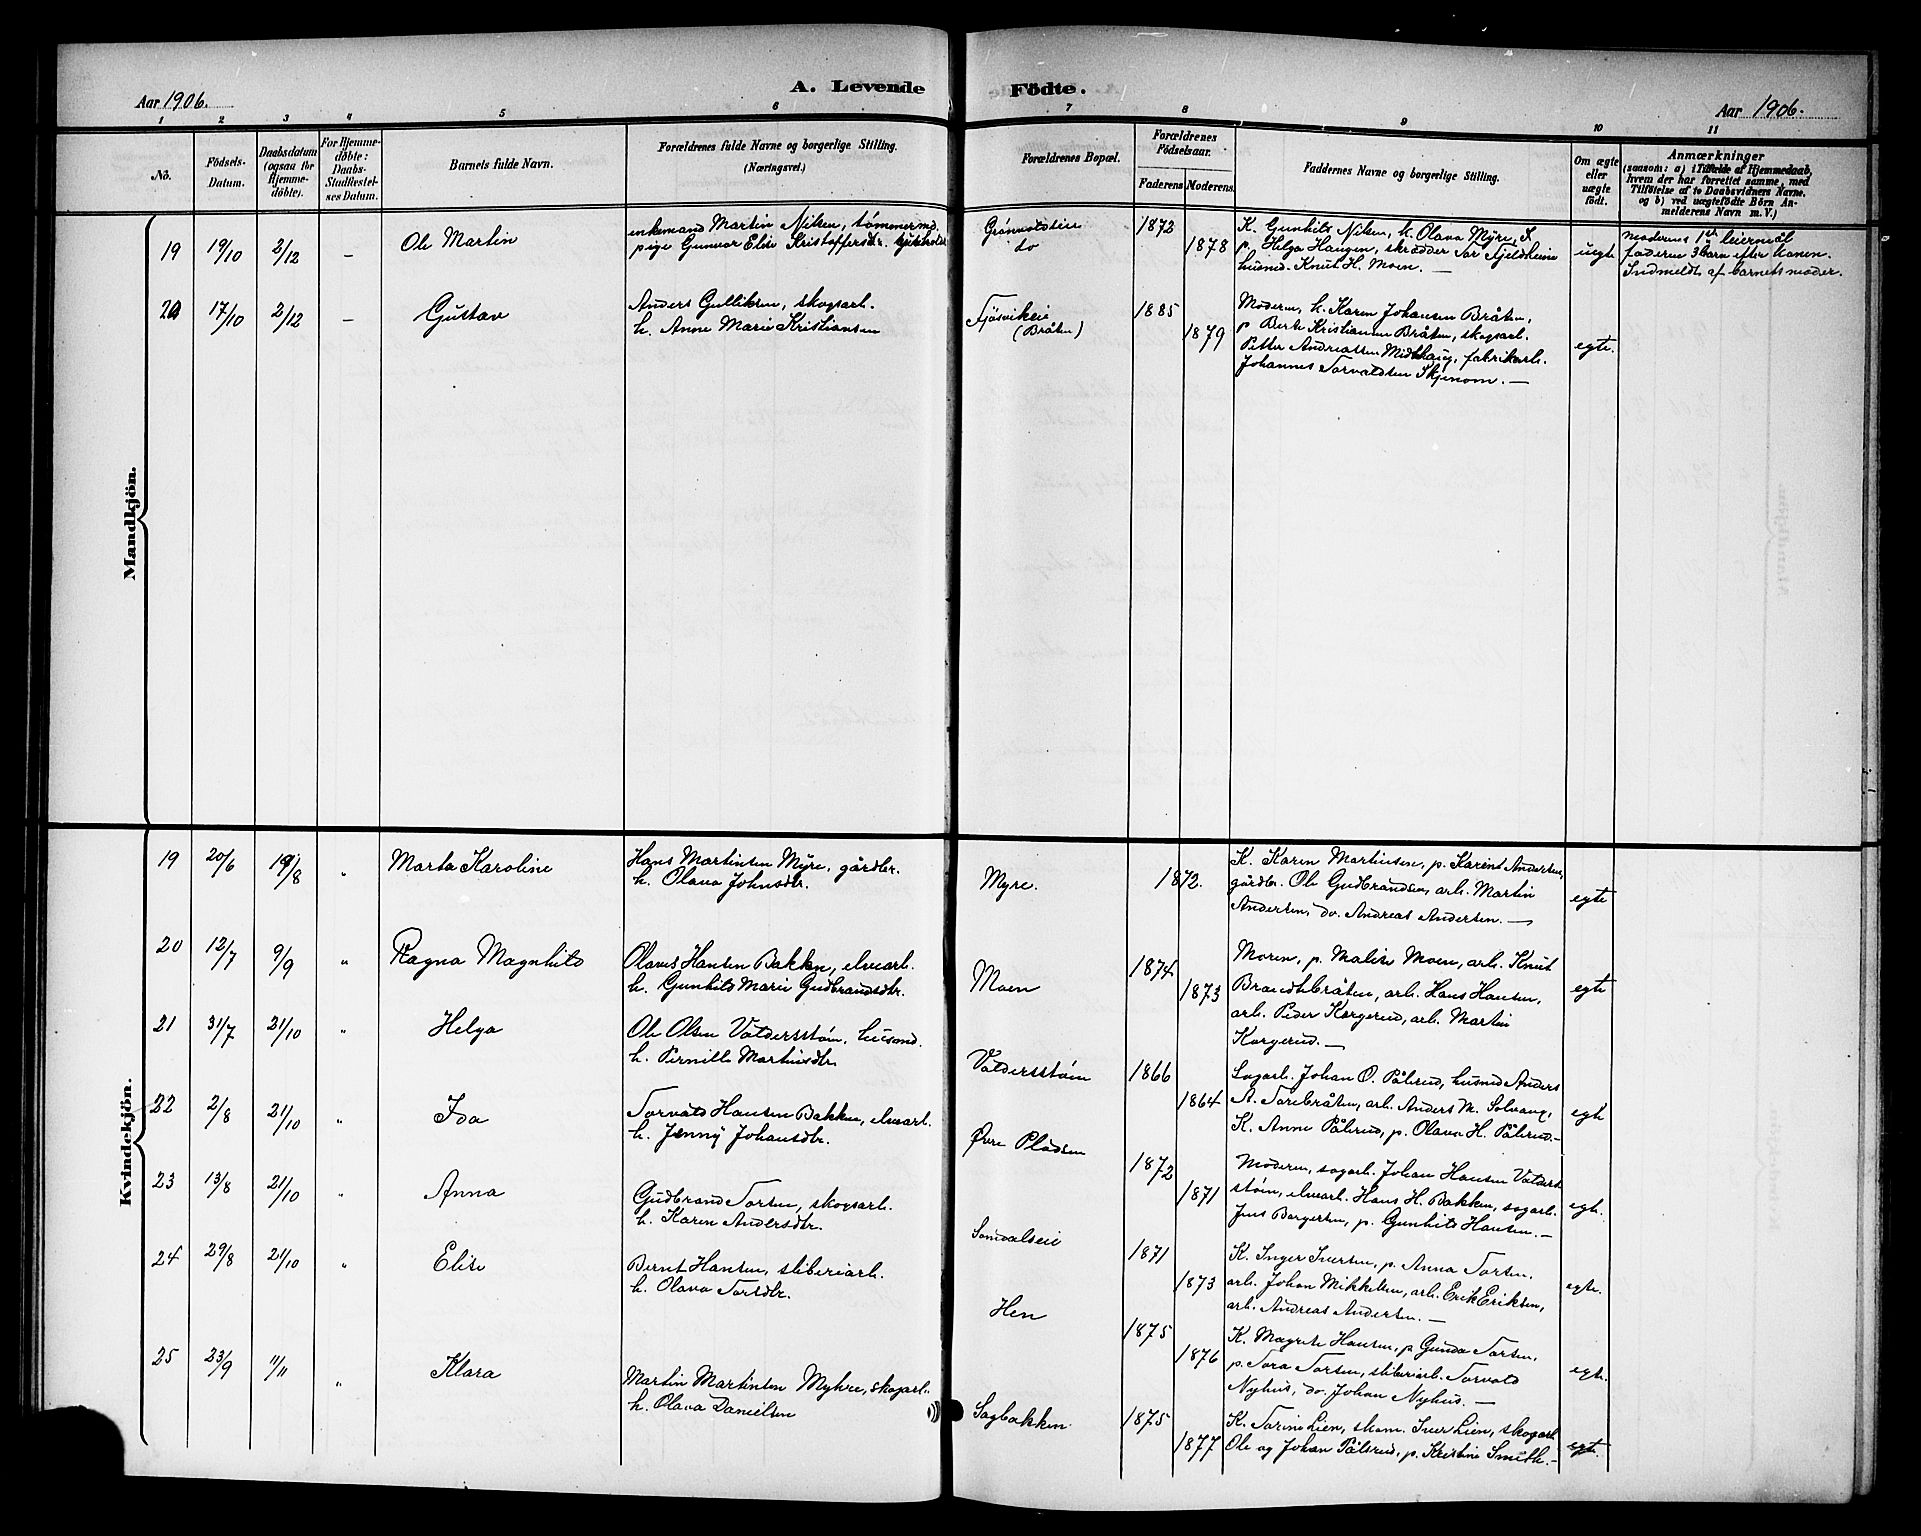 A. Levende Födte.
Aar 1906.
Aar 1906.
1 2 3 4 5 6 7 8 9 10 11
No.
Födsels-Datum.
Daabsdatum (ogsaa for Hjemmedöbte).
For Hjemmedöbte: Daabs-Stadfestelses Datum.
Barnets fulde Navn.
Forældrenes fulde Navne og borgerlige Stilling. (Næringsvei.)
Forældrenes Bopæl.
Forældrenes Födselsaar.
Faderens. Moderens.
Faddernes Navne og borgerlige Stilling.
Om ægte eller uægte födt.
Anmærkninger
(saasom: a) i Tilfælde af Hjemmedaab,
hvem der har forrettet samme, med
Tilföielse af to Daabsvidners Navne.
og b) ved uægtefödte Börn An-
melderens Navn m. V.)
Mandkjön.
19 19/10 2/12 – Ole Martin
enkemand Martin Nilsen, tømmermd.
pige Gunvor Elise Kristoffersdr.
do
1872
1878
K. Gunhild Nilsen, k. Olava Myre,
p. Helga Haugen, skrædder Tor Fjeldheim
husmd. Knut H. Moen. –
uegte
Moderens 1ste leiermål
faderens 3 barn efter konen.
Indmeldt af barnets moder.
20 17/10 2/12 – Gustav
Anders Gulliksen, skogsarb.
h. Anne Marie Kristiansen
Fjøsvikeie
(Bråten)
1885
1879
Moderen, k. Karen Johansen Bråten,
p. Berte Kristiansen Bråten, skogsarb.
Petter Andreassen Midthaug, fabrikarb.
Johannes Torvaldsen Skjenom. –
egte.
Kvindekjön.
19 20/6 19/8 " Marta Karoline
Hans Martinsen Myre, gårdbr.
h. Olava Johnsdtr.
Myre.
1872.
K. Karen Martinsen, p. Karine Andersen,
gårdbr. Ole Gudbrandsen, arb. Martin
Andersen, do. Andreas Andersen. –
egte
20 12/7 9/9 " Ragna Magnhild
Olaves Hansen Bakken, elvearb.
h. Gunhild Marie Gudbrandsdtr.
Moen
1874
1873
Moren, p. Malise Moen, arb. Knut
Brændebråten, arb. Hans Hansen,
arb. Peder Korgerud, arb. Martin
Korgerud. –
egte
21 31/7 21/10 " Helga
Ole Olsen Valdersstøm, husmd.
h. Pernille Martinsdtr.
Valdersstøm
1866
1864
Sagarb. Johan O. Pålerud, husmd Anders
A. Torebråten, arb. Anders M. Solvang,
K. Anne Pålerud, p. Olava H. Pålerud. –
egte
22 2/8 21/10 " Ida
Torvald Hansen Bakken, elvearb.
h. Jenny Johansdtr.
Øvre Pladsen
1872
1871
Moderen, sagarb. Johan Hansen Valders
støm, elvearb. Hans H. Bakken, sagarb.
Jens Borgersen, p. Gunhild Hansen. –
egte.
23 13/8 21/10 " Anna
Gudbrand Torsen, skogsarb.
h. Karen Andersdtr.
Somdalseie
1871
1873
K. Inger Iversen, p. Anna Torsen,
arb. Johan Mikkelsen, arb. Erik Eriksen,
arb. Andreas Andersen. –
egte.
24 29/8 21/10 " Elise
Bernt Hansen, sliberiarb.
h. Olava Torsdtr.
Hen
1875
1876
K. Magrete Hansen, p. Gunda Torsen,
p. Tora Torsen, sliberiarb. Torvald
Nyhus, do. Johan Nyhus. –
egte.
25 23/9 11/11 " Klara
Martin Martinsen Myhre, skogarb.
h. Olava Danielsen
Sagbakken.
1875
1877
K. Torine Lien, skom. Iver Lien, skogarb.
Ole og Johan Pålerud, p. Kristine Smith. –
egte.